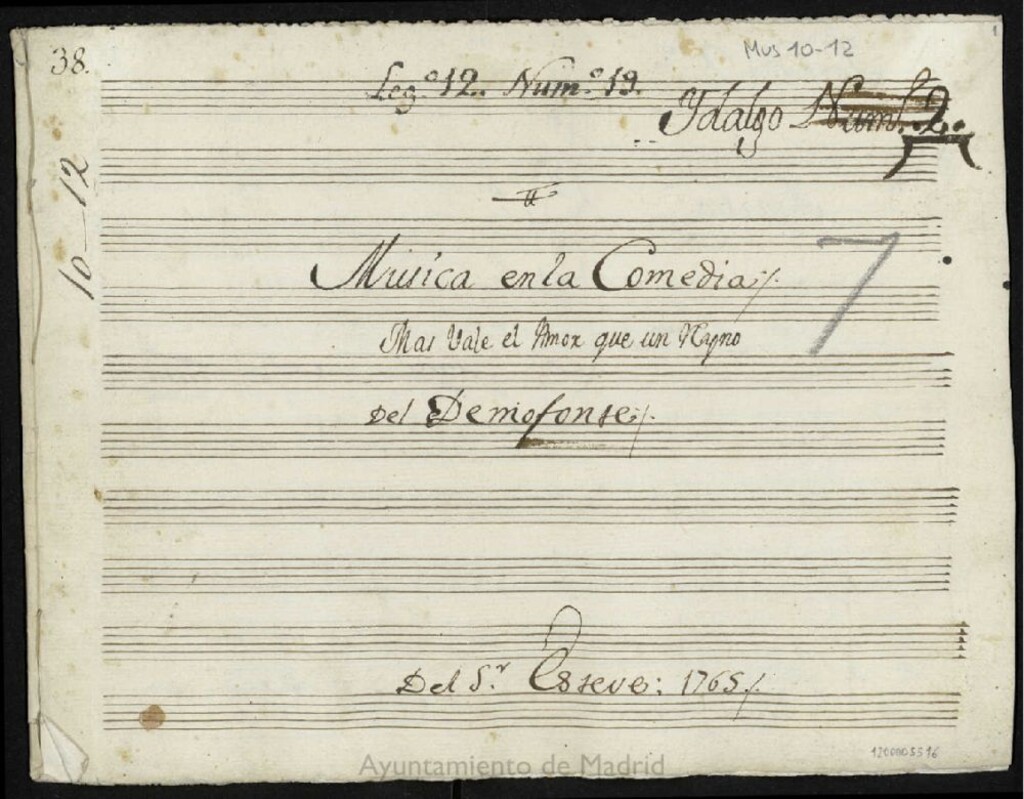 38.
Mus 10-12
Leg.º 12. Num.º 19.
Ydalgo Num.º 2.
10-12
Musica en la Comedia
7
Mas Vale el Amor que un Reyno
Del Demofonte
Del S.r Esteve: 1765
1200005516
Ayuntamiento de Madrid